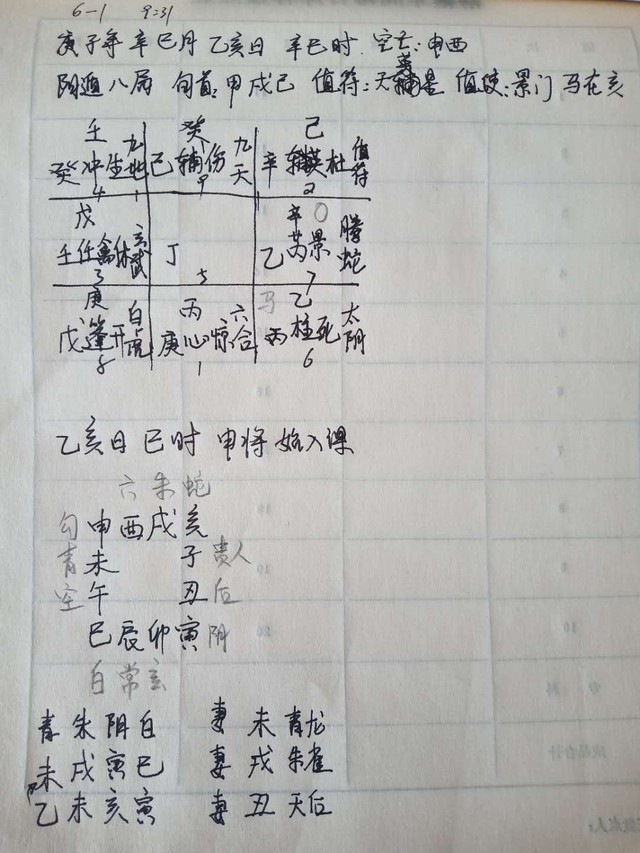 6-1 9:31
庚子年 辛巳月 乙亥日 辛巳时 空亡:申酉
阴遁八局 旬首:甲戌己 值符:天英星 值使:景门 马在亥
壬 癸 己
癸冲生九地 己辅伤九天 辛英杜值符
4 9 2
戊 辛
壬任禽休玄武 丁 乙芮景腾蛇
3 5 7
庚 丙 马 乙
戊蓬开白虎 庚心惊六合 丙柱死太阴
8 1 6
乙亥日 巳时 申将 始入课
六 朱 蛇
勾 申 酉 戌 亥
青 未 子 贵人
空 午 丑 后
巳 辰 卯 寅 阴
白 常 玄
青 朱 阴 白 妻 未 青龙
未 戌 寅 巳 妻 戌 朱雀
乙 未 亥 寅 妻 丑 天后